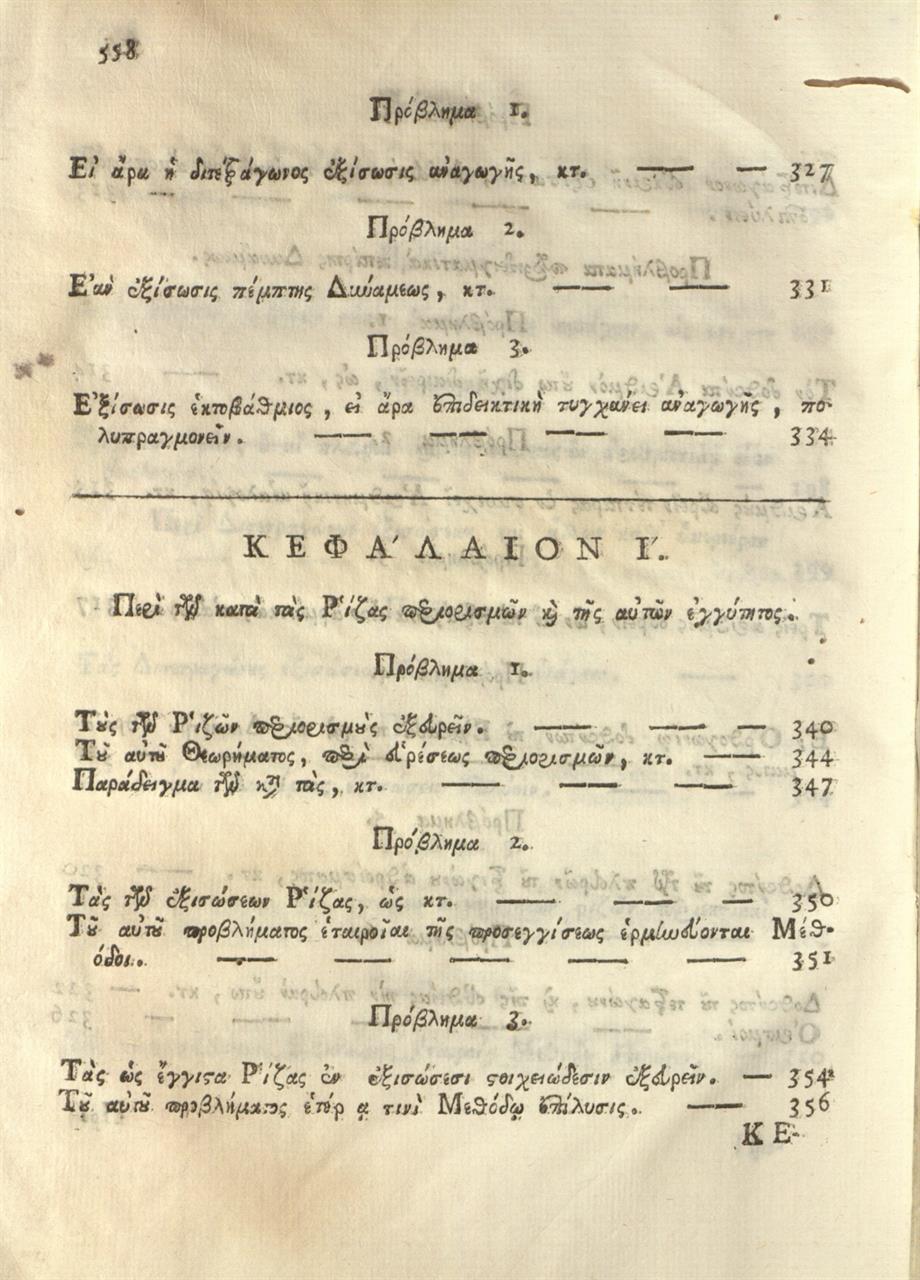 558
Πρόβλημα 1.
Εἰ ἄρα ἡ διτετράγωνος ἐξίσωσις ἀναγωγῆς, κτ. — — 327
Πρόβλημα 2.
Ἐὰν ἐξίσωσις πέμπτης Δυνάμεως, κτ. — — 331
Πρόβλημα 3.
Ἐξίσωσις ἑκτοβάθμιος, εἰ ἄρα ἐπιδεικτικὴ τυγχάνει ἀναγωγῆς, πο-
λυπραγμονεῖν. — — — — 334
ΚΕΦΑ΄ΛΑΙΟΝ Ι΄.
Περὶ τῶν κατὰ τὰς Ῥίζας περιορισμῶν καὶ τῆς αὐτῶν ἐγγύτητος.
Πρόβλημα 1.
Τοὺς τῶν Ῥιζῶν περιορισμοὺς ἐξευρεῖν. — — — 340
Τοῦ αὐτοῦ Θεωρήματος, περὶ εὑρέσεως περιορισμῶν, κτ. — — 344
Παράδειγμα τῶν κατὰ τὰς, κτ. — — — 347
Πρόβλημα 2.
Τὰς τῶν ἐξισώσεων Ῥίζας, ὡς κτ. — — — 350
Τοῦ αὐτοῦ προβλήματος ἑταιροῖαι τῆς προσεγγίσεως ἑρμηνεύονται Μέθ-
όδοι. — — — — — 351
Πρόβλημα 3.
Τὰς ὡς ἔγγιστα Ῥίζας ἐν ἐξισώσεσι στοιχειώδεσιν ἐξευρεῖν. — 354
Τοῦ αὐτοῦ προβλήματος ἑτέρᾳ τινὶ Μεθόδῳ ἐπίλυσις. — 356
ΚΕ-